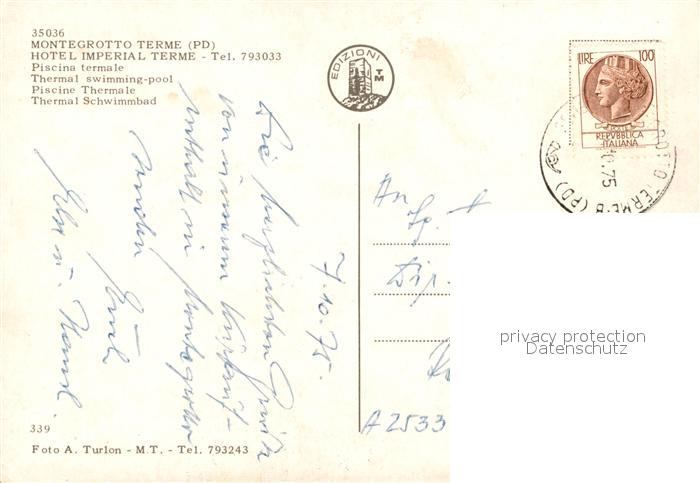 35036
MONTEGROTTO TERME (PD)
HOTEL IMPERIAL TERME - Tel. 793033
Piscina termale
Thermal swimming-pool
Piscine Thermale
Thermal Schwimmbad
EDIZIONI
TM
LIRE 100
POSTE
REPVBBLICA
ITALIANA
.10.75
7.10.75.
Die herzlichsten
von unserem
Aufenthalt in Montegrotto
senden Euch
An
Dip.
A 2533
privacy protection
Datenschutz
339
Foto A. Turlon - M.T. - Tel. 793243